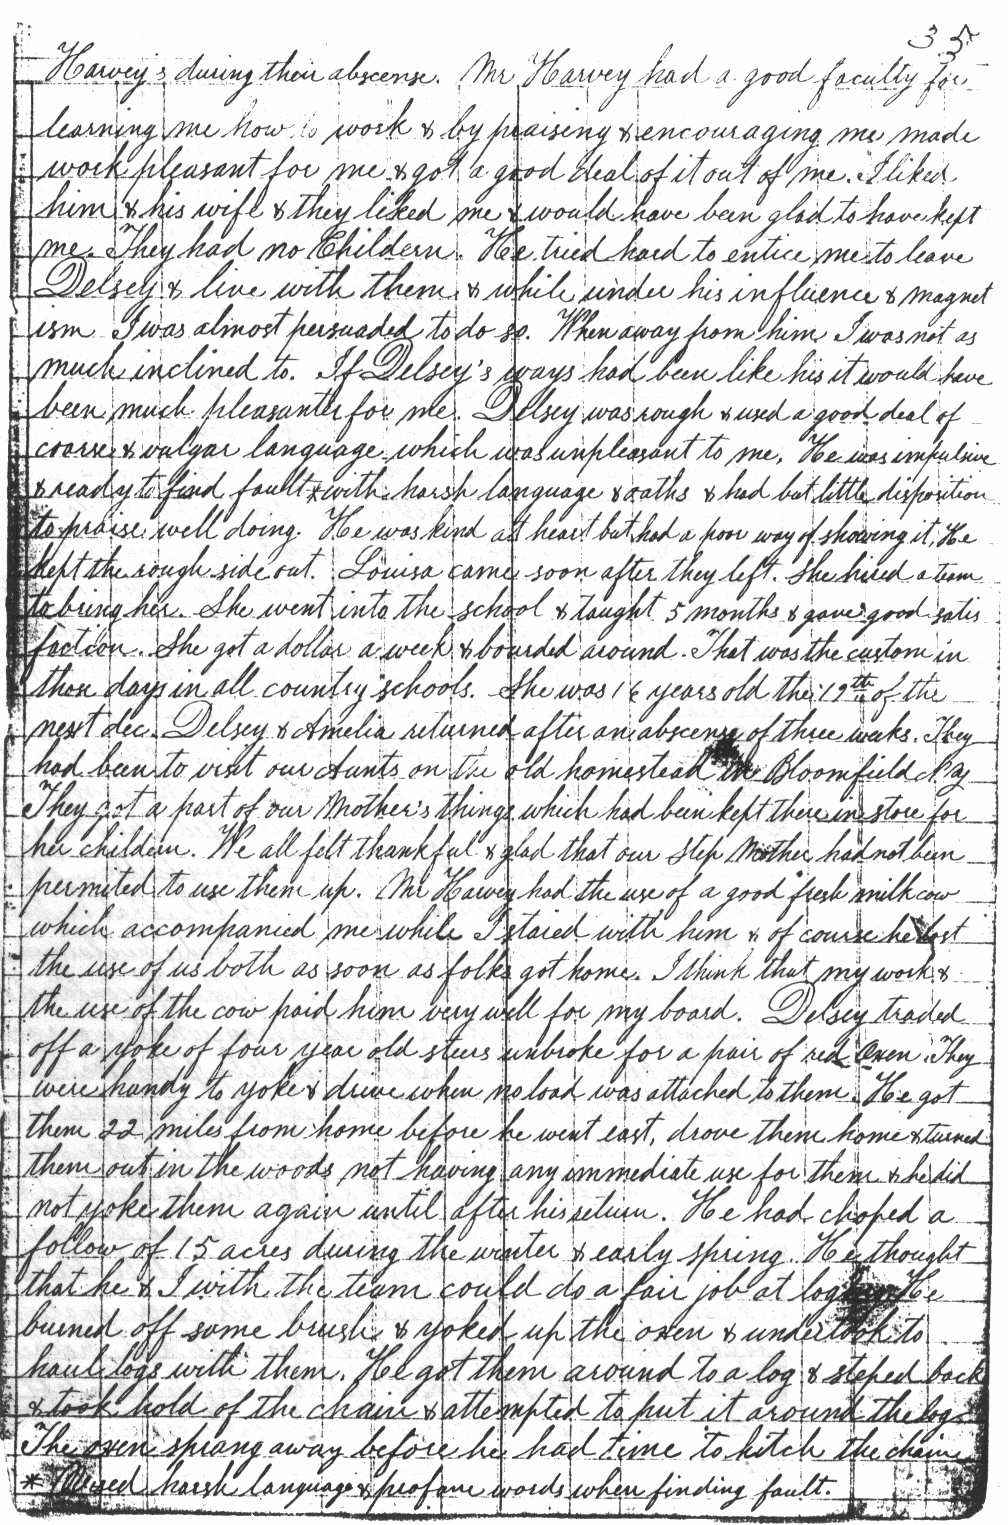 35
Harvey's during their abscense. Mr Harvey had a good faculty for
learning me how to work & by praiseing & encouraging me made
work pleasant for me & got a good deal of it out of me. I liked
him & his wife & they liked me & would have been glad to have kept
me. They had no Childern. He tried hard to entice me to leave
Delsey & live with them & while under his influence & magnet
ism I was almost persuaded to do so. When away from him I was not as
much inclined to. If Delsey's ways had been like his it would have
been much pleasanter for me. Delsey was rough & used a good deal of
coarse & vulgar language which was unpleasant to me. He was impulsive
& ready to find fault * with harsh language & oaths & had but little disposition
to praise well doing. He was kind at heart but had a poor way of showing it. He
kept the rough side out. Louisa came soon after they left. She hired a team
to bring her. She went into the school & taught 5 months & gave good satis
faction. She got a dollar a week & boarded around. That was the custom in
those days in all country schools. She was 16 years old the 19th of the
next dec. Delsey & Amelia returned after an abscense of three weeks. They
had been to visit our Aunts on the old homestead in Bloomfield N.Y
They got a part of our Mother's things which had been kept there in store for
her childern. We all felt thankful & glad that our Step Mother had not been
permited to use them up. Mr Harvey had the use of a good fresh milk cow
which accompanied me while I staied with him & of course he lost
the use of us both as soon as folks got home. I think that my work &
the use of the cow paid him very well for my board. Delsey traded
off a yoke of four year old steers unbroke for a pair of red Oxen. They
were handy to yoke & drive when no load was attached to them. He got
them 22 miles from home before he went east, drove them home & turned
them out in the woods not having any immediate use for them & he did
not yoke them again until after his return. He had choped a
follow of 15 acres during the winter & early spring. He thought
that he & I with the team could do a fair job at He
burned off some brush & yoked up the oxen & undertook to
haul logs with them. He got them around to a log & steped back
& took hold of the chain & attempted to put it around the log.
The oxen sprang away before he had time to hitch the chain
* used harsh language & profane words when finding fault.